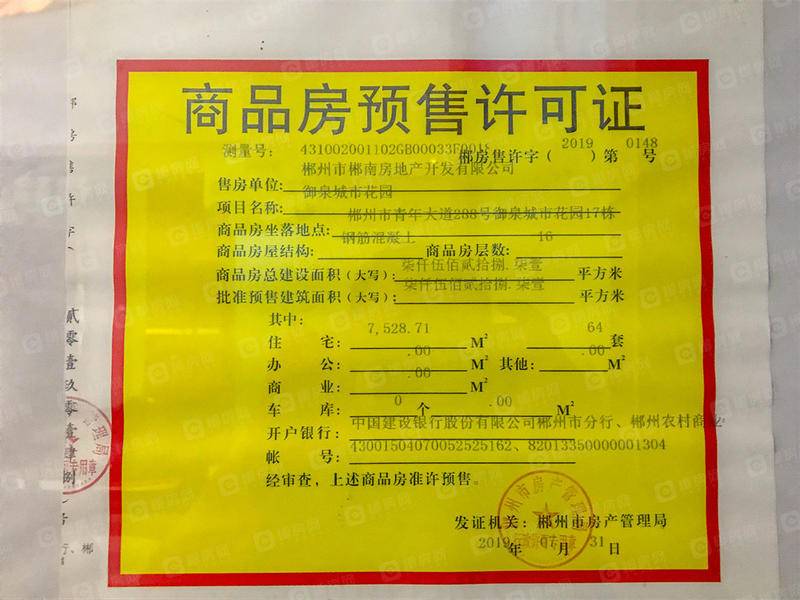 商品房预售许可证
测量号: 431002001102GB00033F0016
郴房售许字(2019)第0148号
售房单位: 郴州市郴南房地产开发有限公司
项目名称: 御泉城市花园
商品房坐落地点: 郴州市青年大道288号御泉城市花园17栋
商品房屋结构: 钢筋混凝土 商品房层数: 16
商品房总建设面积(大写): 柒仟伍佰贰拾捌.柒壹 平方米
批准预售建筑面积(大写): 柒仟伍佰贰拾捌.柒壹 平方米
其中:
住宅: 7,528.71 M² 64 套
办公: .00 M² 其他: .00 M²
商业: .00 M²
车库: 0 个 .00 M²
开户银行: 中国建设银行股份有限公司郴州市分行、郴州农村商业
帐号: 43001504070052525162、82013350000001304
经审查,上述商品房准许预售。
发证机关: 郴州市房产管理局
2019年07月31日
郴州市房产管理局
房售许字(
贰零壹玖零壹肆捌
号
行、郴
管理局
专用章